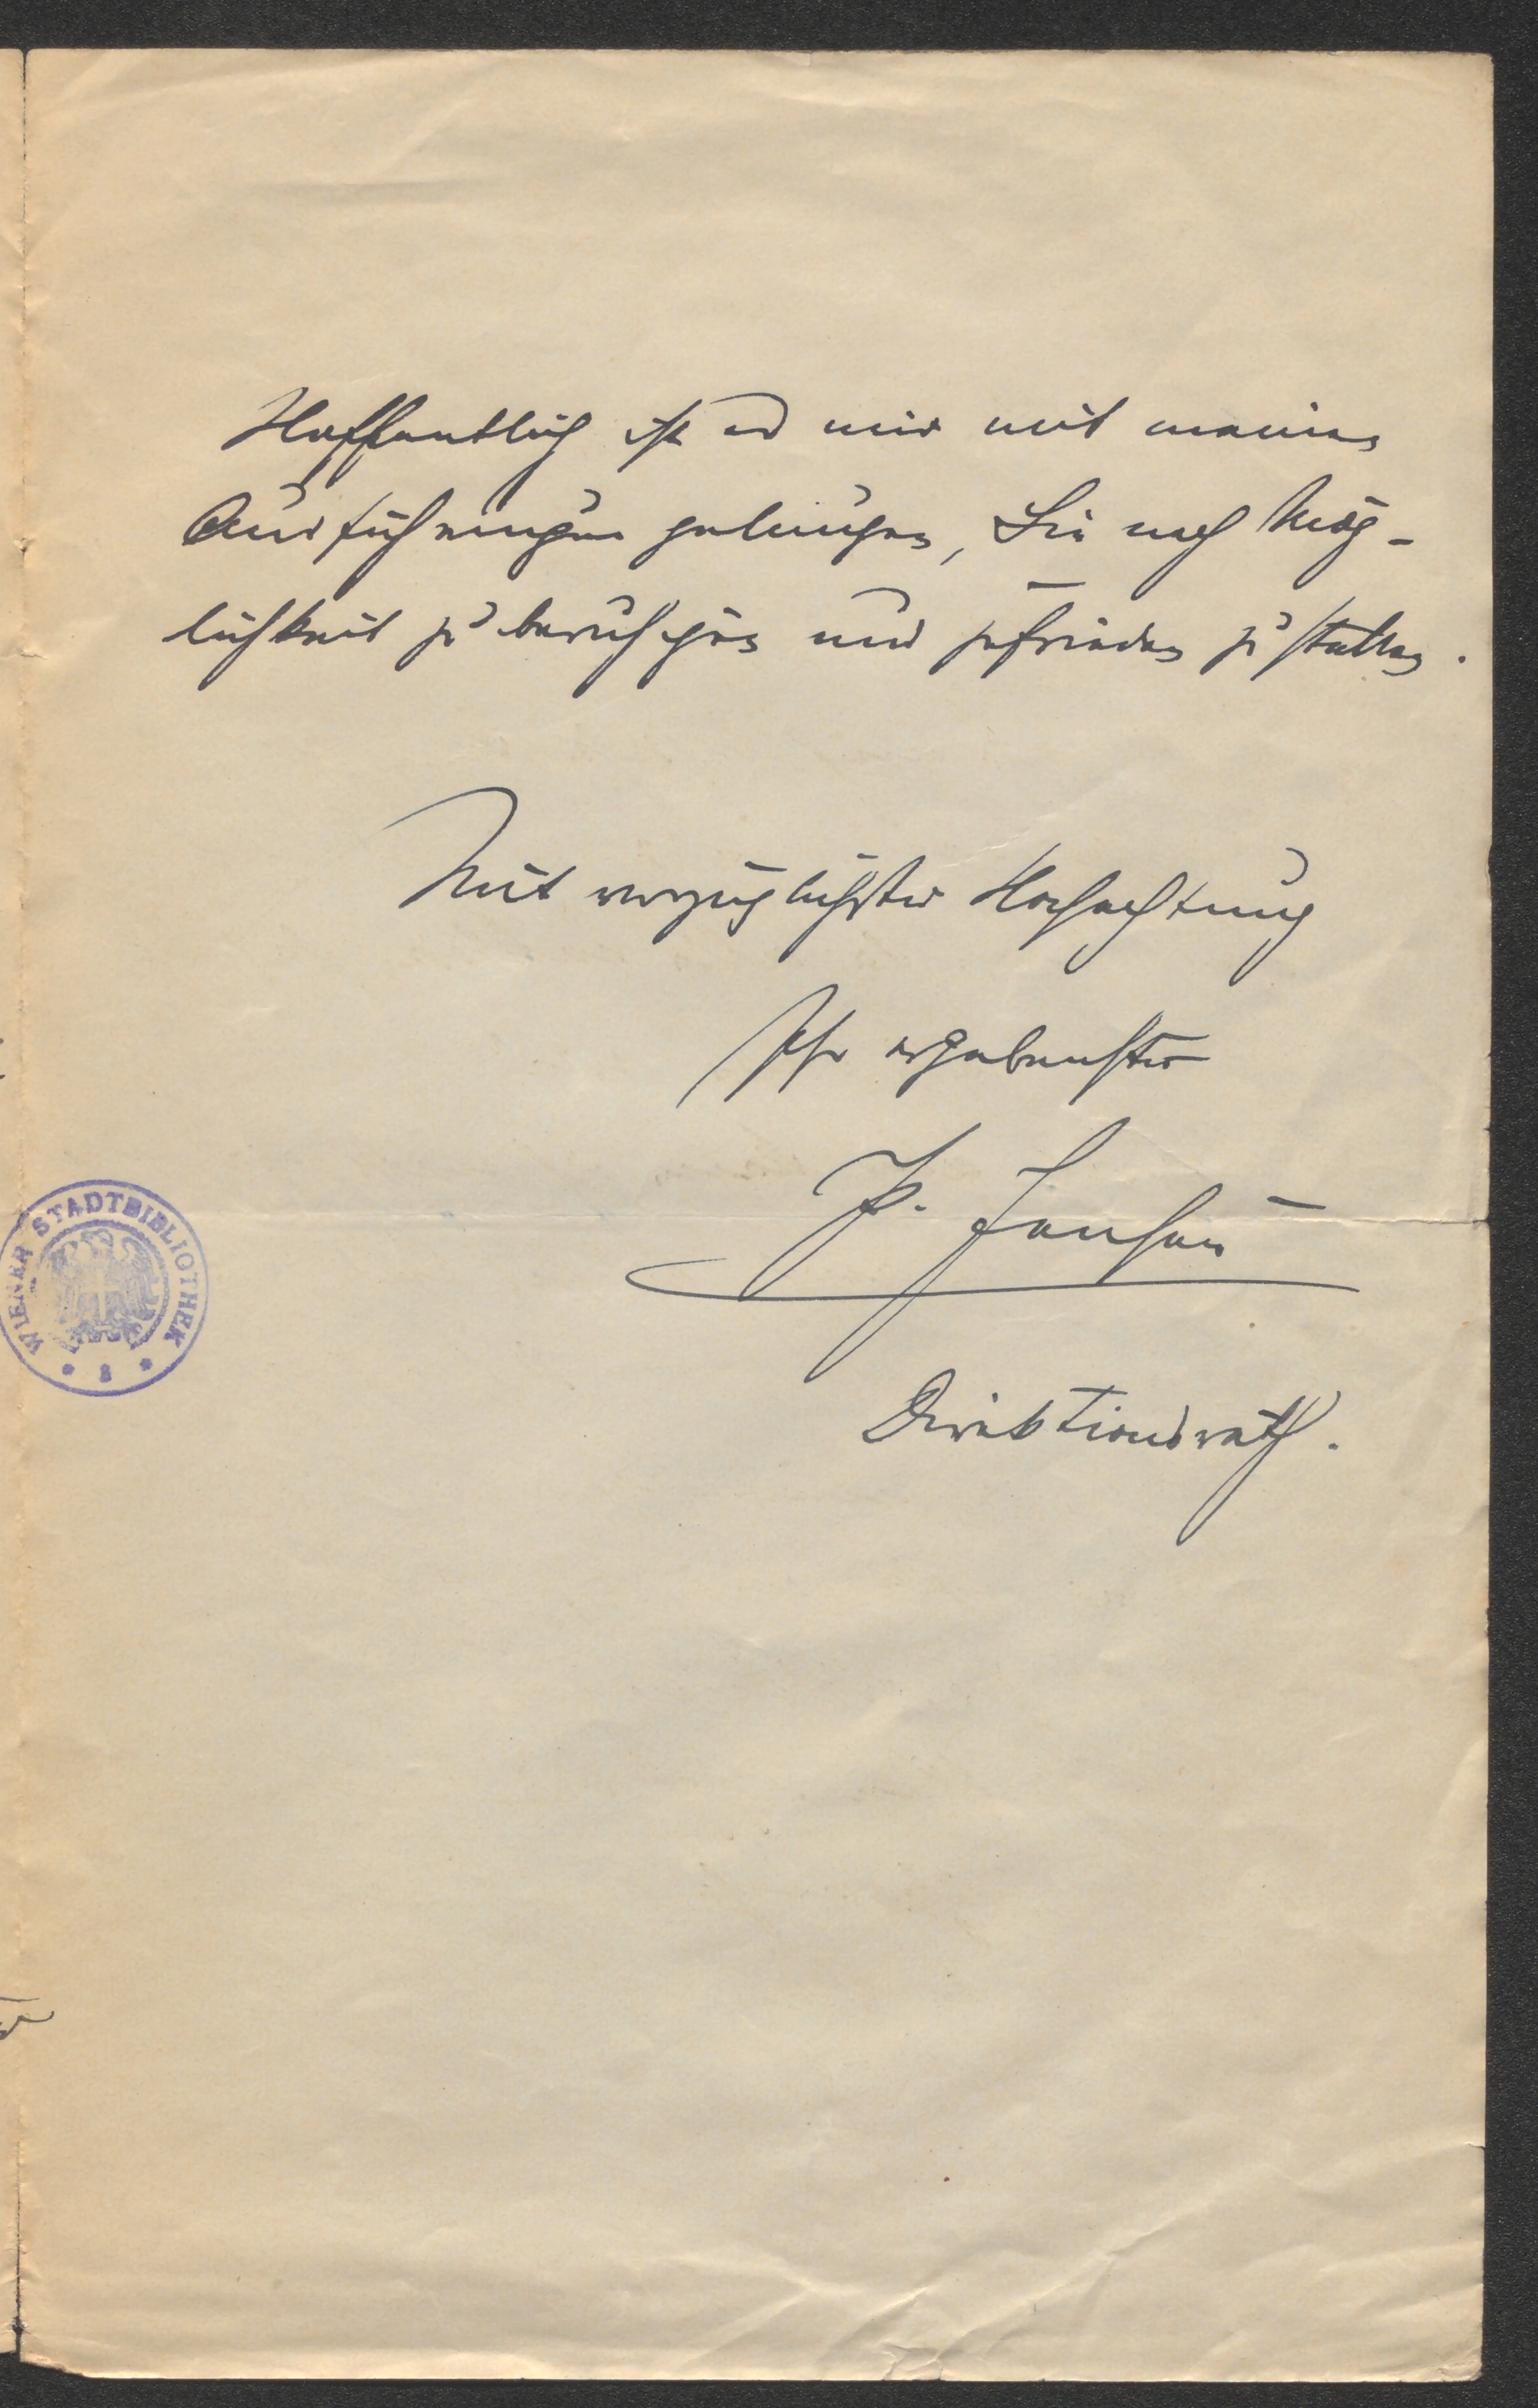 Hoffentlich ist es mir mit meinen
Ausführungen gelungen, Sie nach Mög-
lichkeit zu beruhigen und zufrieden zu stellen.
Mit vorzüglichster Hochachtung
Ihr ergebenster
Jansen
Direktionsrath.
WIENER STADTBIBLIOTHEK